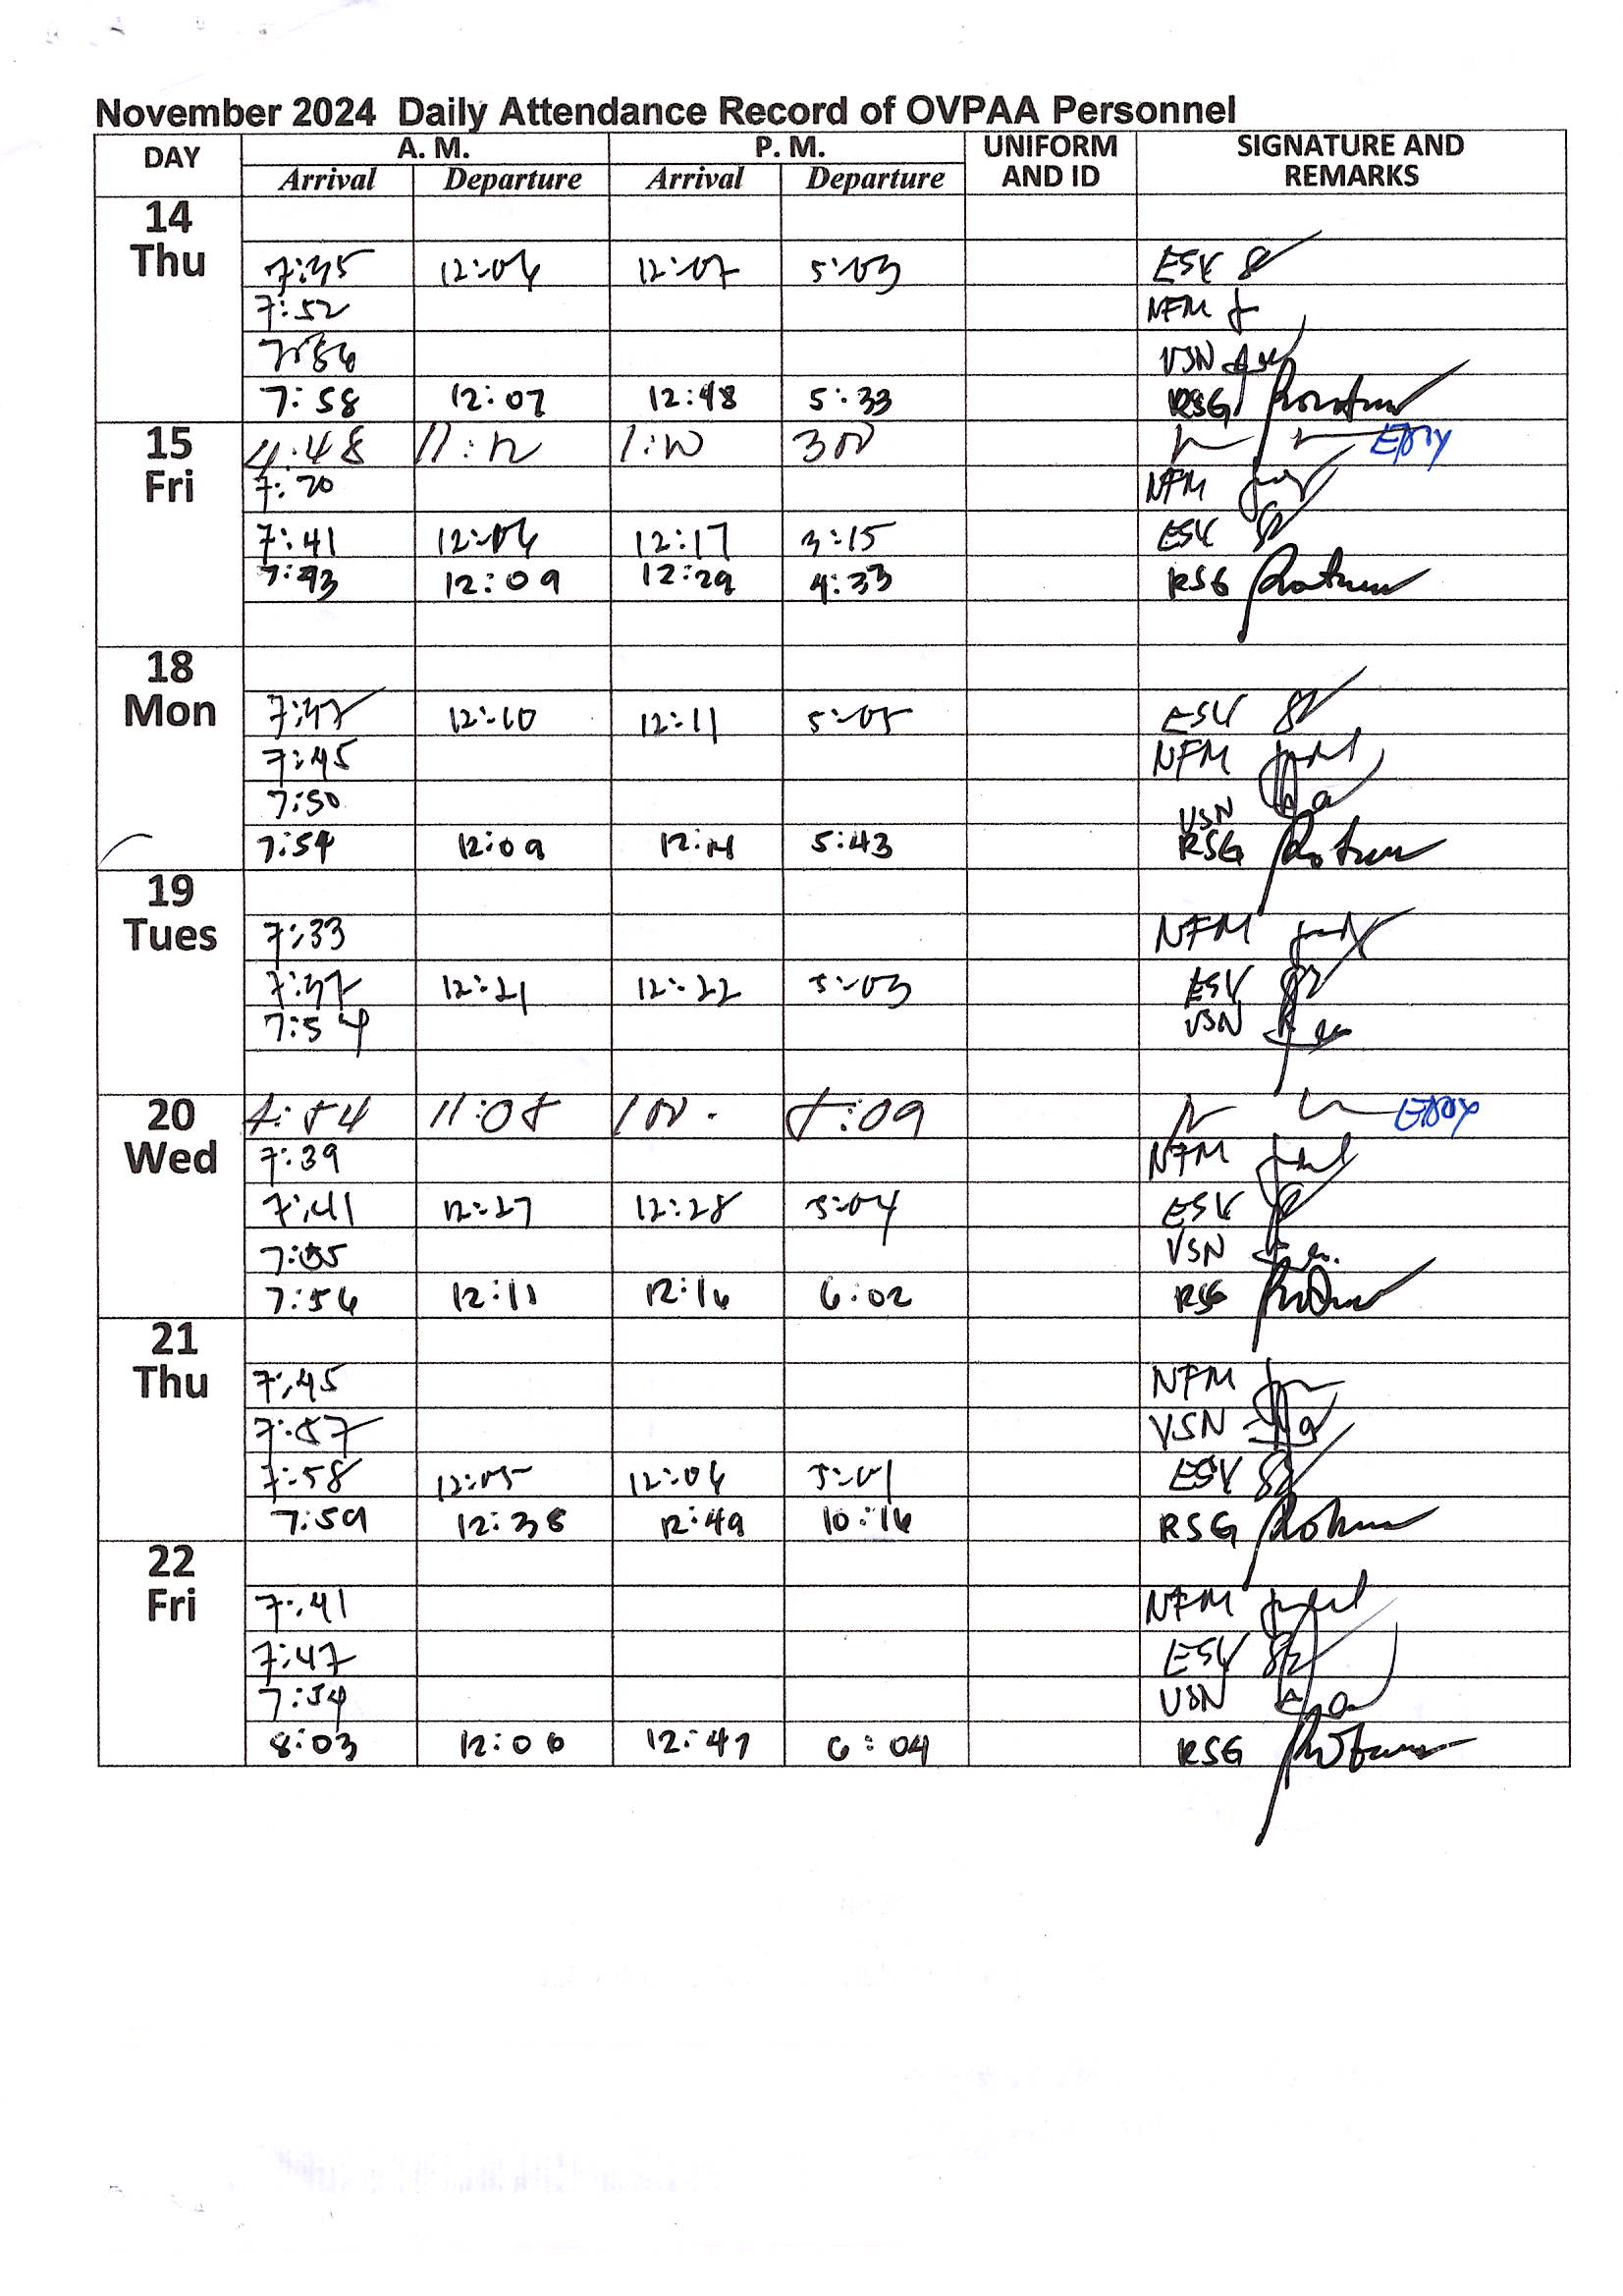 November 2024 Daily Attendance Record of OVPAA Personnel
DAY A. M. P. M. UNIFORM AND ID SIGNATURE AND REMARKS
Arrival Departure Arrival Departure
14 Thu
7:35 12:06 12:07 5:03 ESV
7:52 NFM
7:56 VSN
7:58 12:07 12:48 5:33 RSG
15 Fri
:48 11:12 1:10 300
7:20 NFM
7:41 12:06 12:17 3:15 ESV
7:43 12:09 12:29 4:33 RSG
18 Mon
7:37 12:10 12:11 5:05 ESV
7:45 NFM
7:50 VSN
7:54 12:09 12:14 5:43 RSG
19 Tues
7:33 NFM
7:37 12:21 12:22 5:03 ESV
7:54 VSN
20 Wed
11:08 100 :09
7:39 NFM
7:41 12:27 12:28 5:04 ESV
VSN
7:56 12:11 12:16 6:02 RSG
21 Thu
7:45 NFM
7:57 VSN
7:58 12:05 12:06 5:01 ESV
7:59 12:38 12:49 10:16 RSG
22 Fri
7:41 NFM
7:47 ESV
7:54 VSN
8:03 12:06 12:47 6:04 RSG